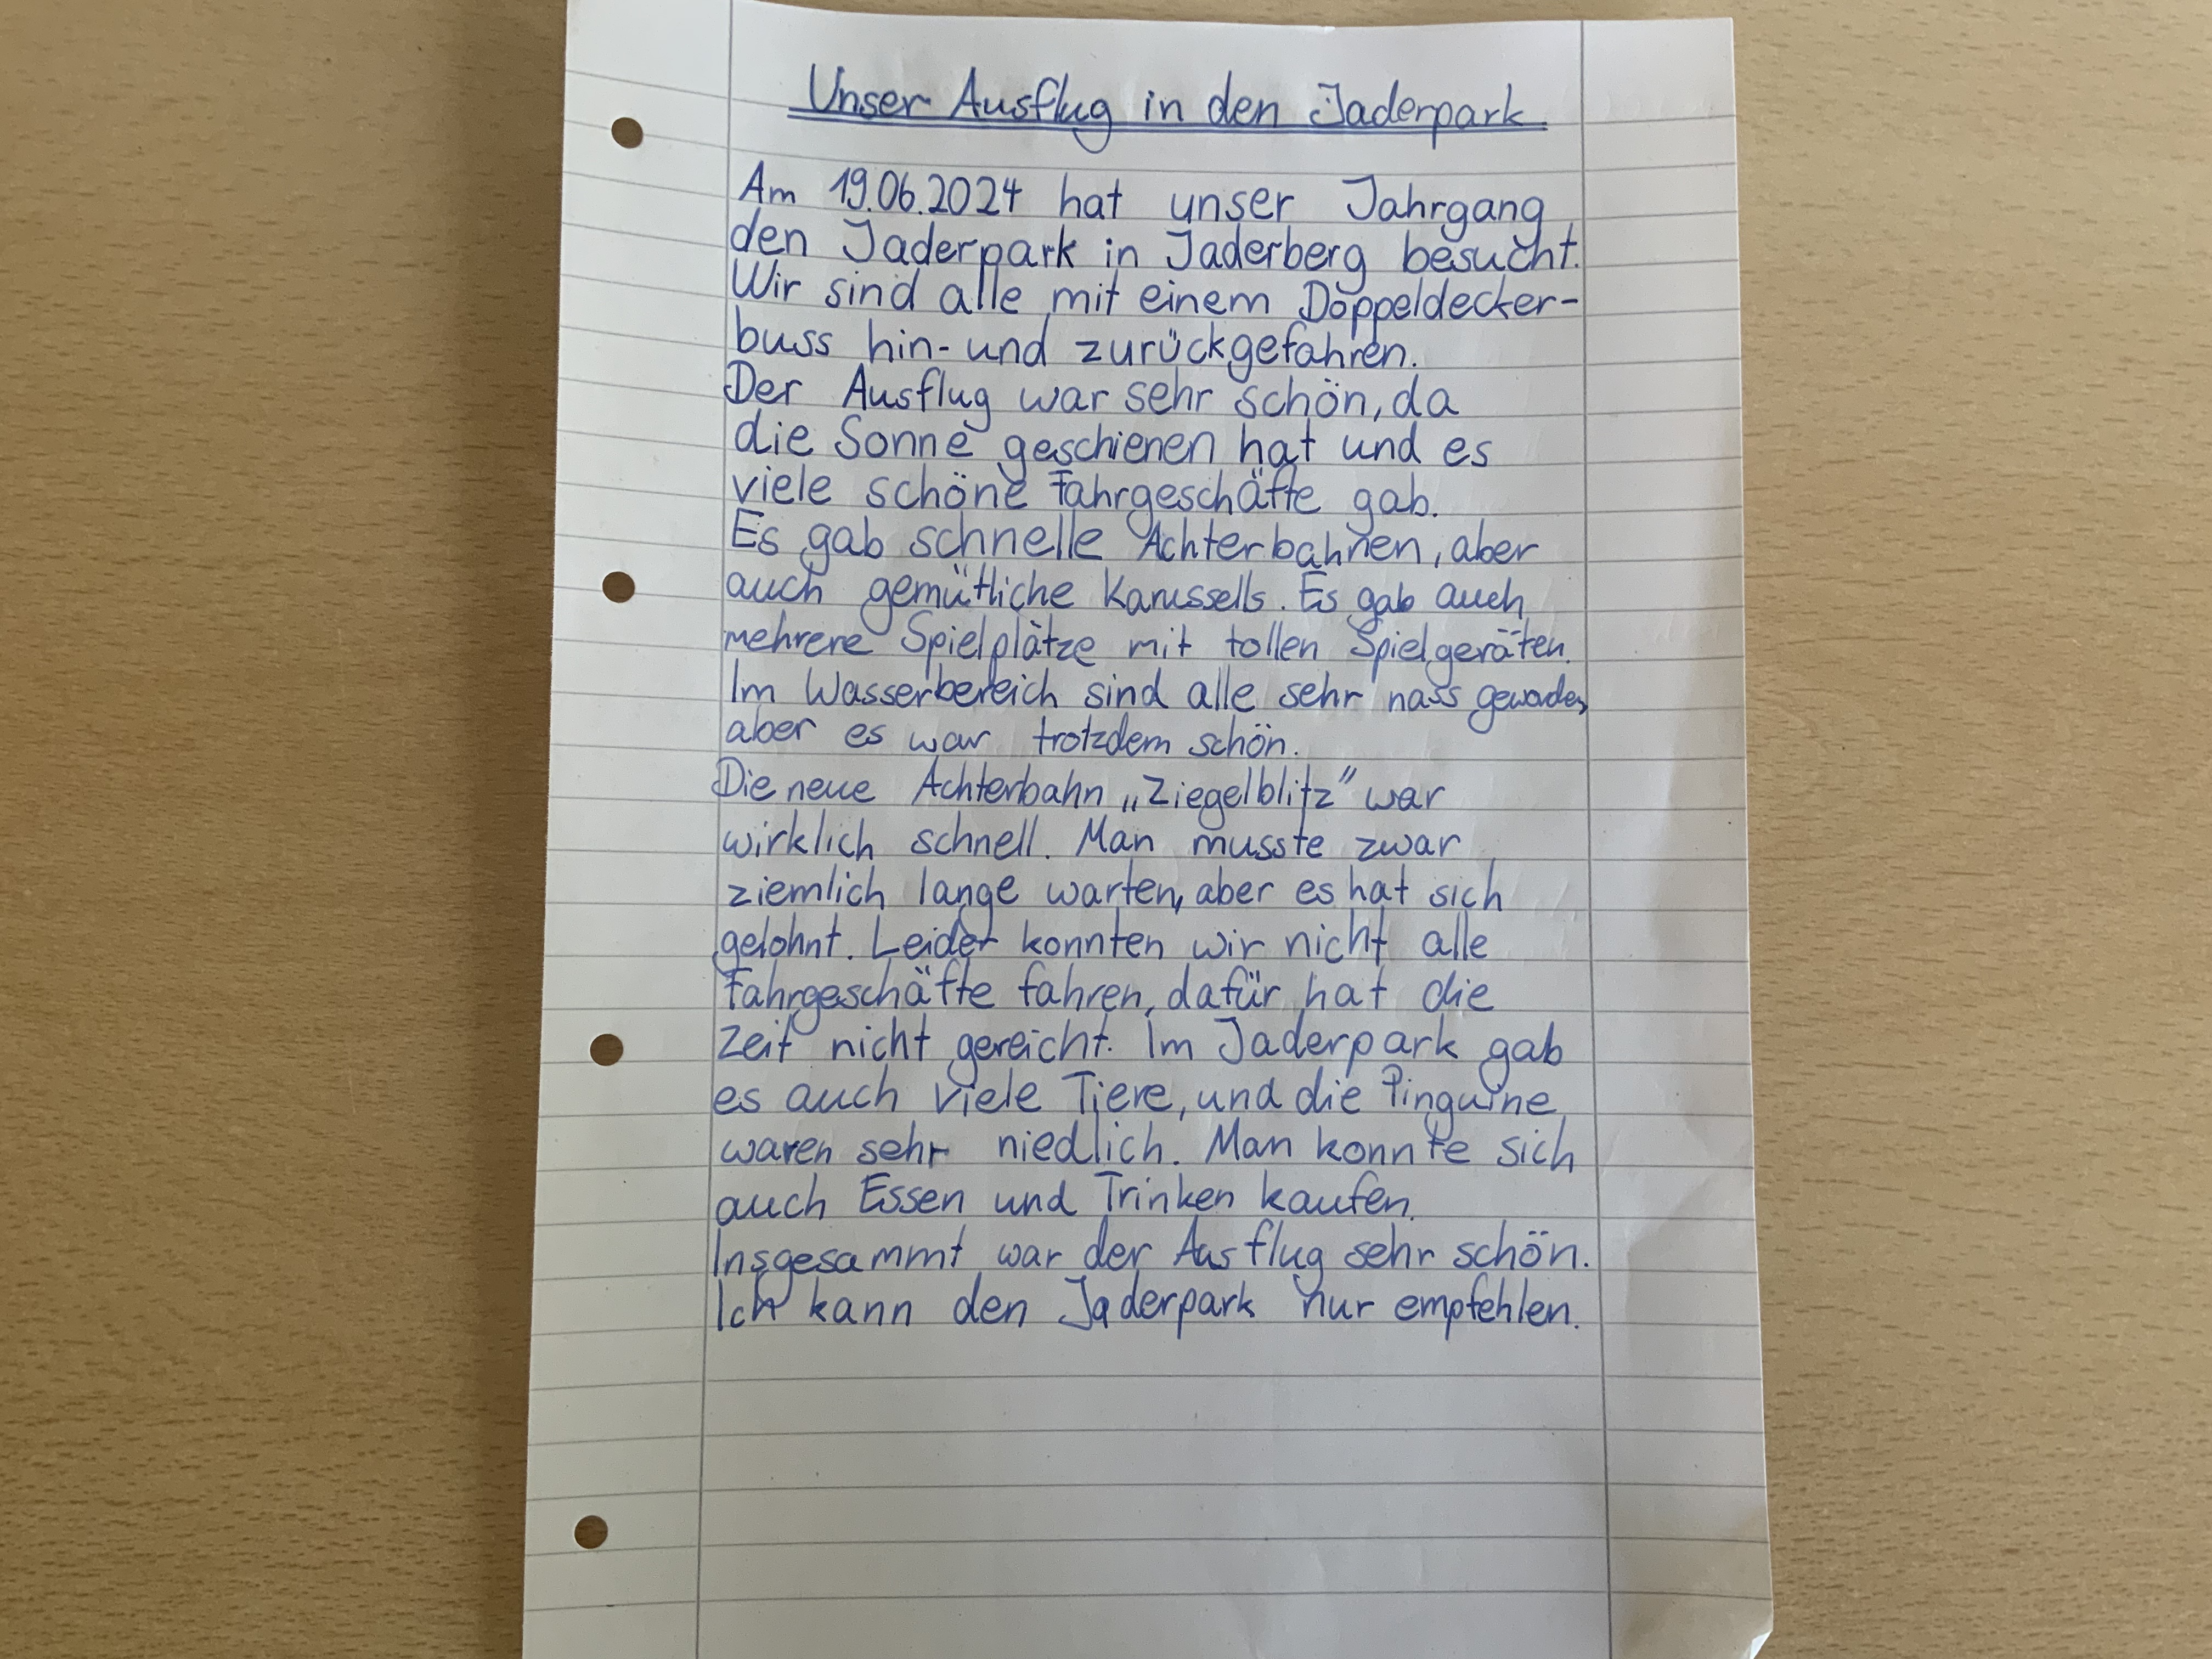 Unser Ausflug in den Jaderpark
Am 19.06.2024 hat unser Jahrgang
den Jaderpark in Jaderberg besucht.
Wir sind alle mit einem Doppeldecker-
buss hin- und zurückgefahren.
Der Ausflug war sehr schön, da
die Sonne geschienen hat und es
viele schöne Fahrgeschäfte gab.
Es gab schnelle Achterbahnen, aber
auch gemütliche Karussells. Es gab auch
mehrere Spielplätze mit tollen Spielgeräten.
Im Wasserbereich sind alle sehr nass geworden,
aber es war trotzdem schön.
Die neue Achterbahn „Ziegelblitz" war
wirklich schnell. Man musste zwar
ziemlich lange warten, aber es hat sich
gelohnt. Leider konnten wir nicht alle
Fahrgeschäfte fahren, dafür hat die
Zeit nicht gereicht. Im Jaderpark gab
es auch viele Tiere, und die Pinguine
waren sehr niedlich. Man konnte sich
auch Essen und Trinken kaufen.
Insgesammt war der Ausflug sehr schön.
Ich kann den Jaderpark nur empfehlen.